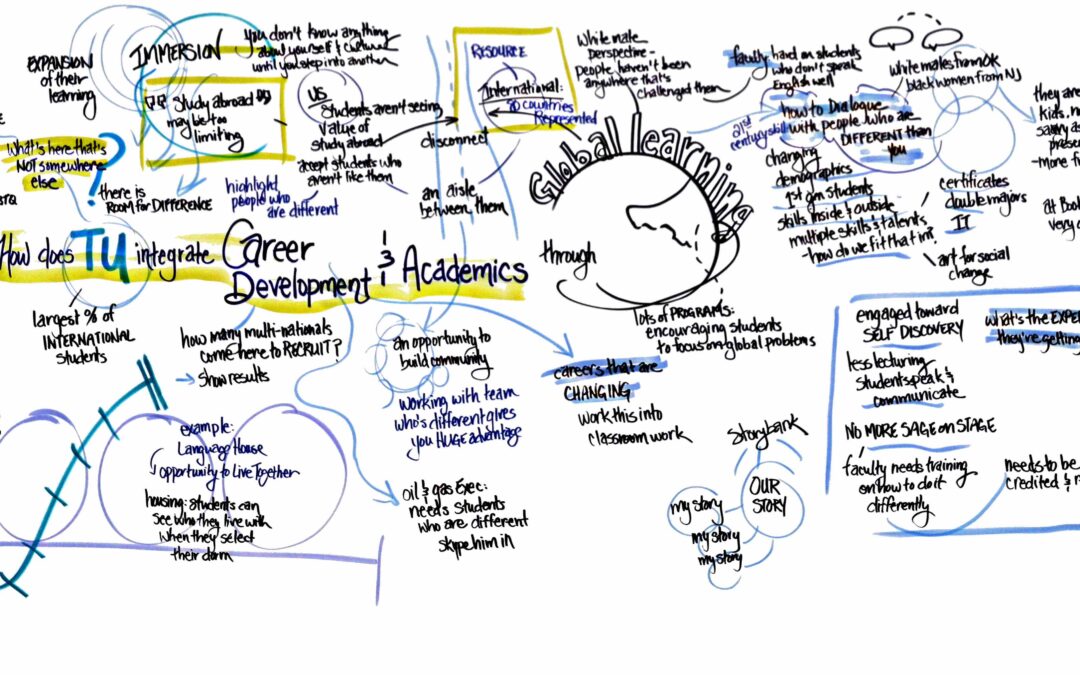 EXPANSION
of their
learning
IMMERSION
you don't know anything
about yourself & culture
until you step into another
Study abroad
may be too
limiting
What's here that's
NOT somewhere
else
?
TQ
there is
ROOM for DIFFERENCE
US
Students aren't seeing
Value of
study abroad
accept students who
aren't like them
highlight
people who
are different
disconnect
an aisle
between them
RESOURCE
International:
countries
Represented
White male
perspective -
people haven't been
anywhere that's
challenged them
Global learning
through
faculty hard on students
who don't speak
English well
white males from OK
black women from NJ
21st
century skill
how to Dialogue
with people who are
DIFFERENT than
you
changing
demographics
1st gen students
skills inside & outside
multiple skills & talents
-how do we fit that in?
certificates
double majors
IT
art for social
change
they are
kids, n
savvy as
prese
-more fi
at Bo
very
How does TU integrate Career
Development & Academics
largest % of
INTERNATIONAL
students
how many multi-nationals
come here to RECRUIT?
→ show results
an opportunity to
build community
working with team
who's different gives
you HUGE advantage
oil & gas Exec:
needs students
who are different
skype him in
careers that are
CHANGING
work this into
classroom work
lots of PROGRAMS:
encouraging students
to focus on global problems
example:
Language House
opportunity to Live Together
housing: students can
see who they live with
when they select
their dorm
Storybank
OUR
STORY
my story
my story
my story
engaged toward
SELF DISCOVERY
what's the EXPE
they're getting
less lecturing
students speak &
communicate
NO MORE SAGE on STAGE
faculty needs training
on how to do it
differently
needs to be
credited &